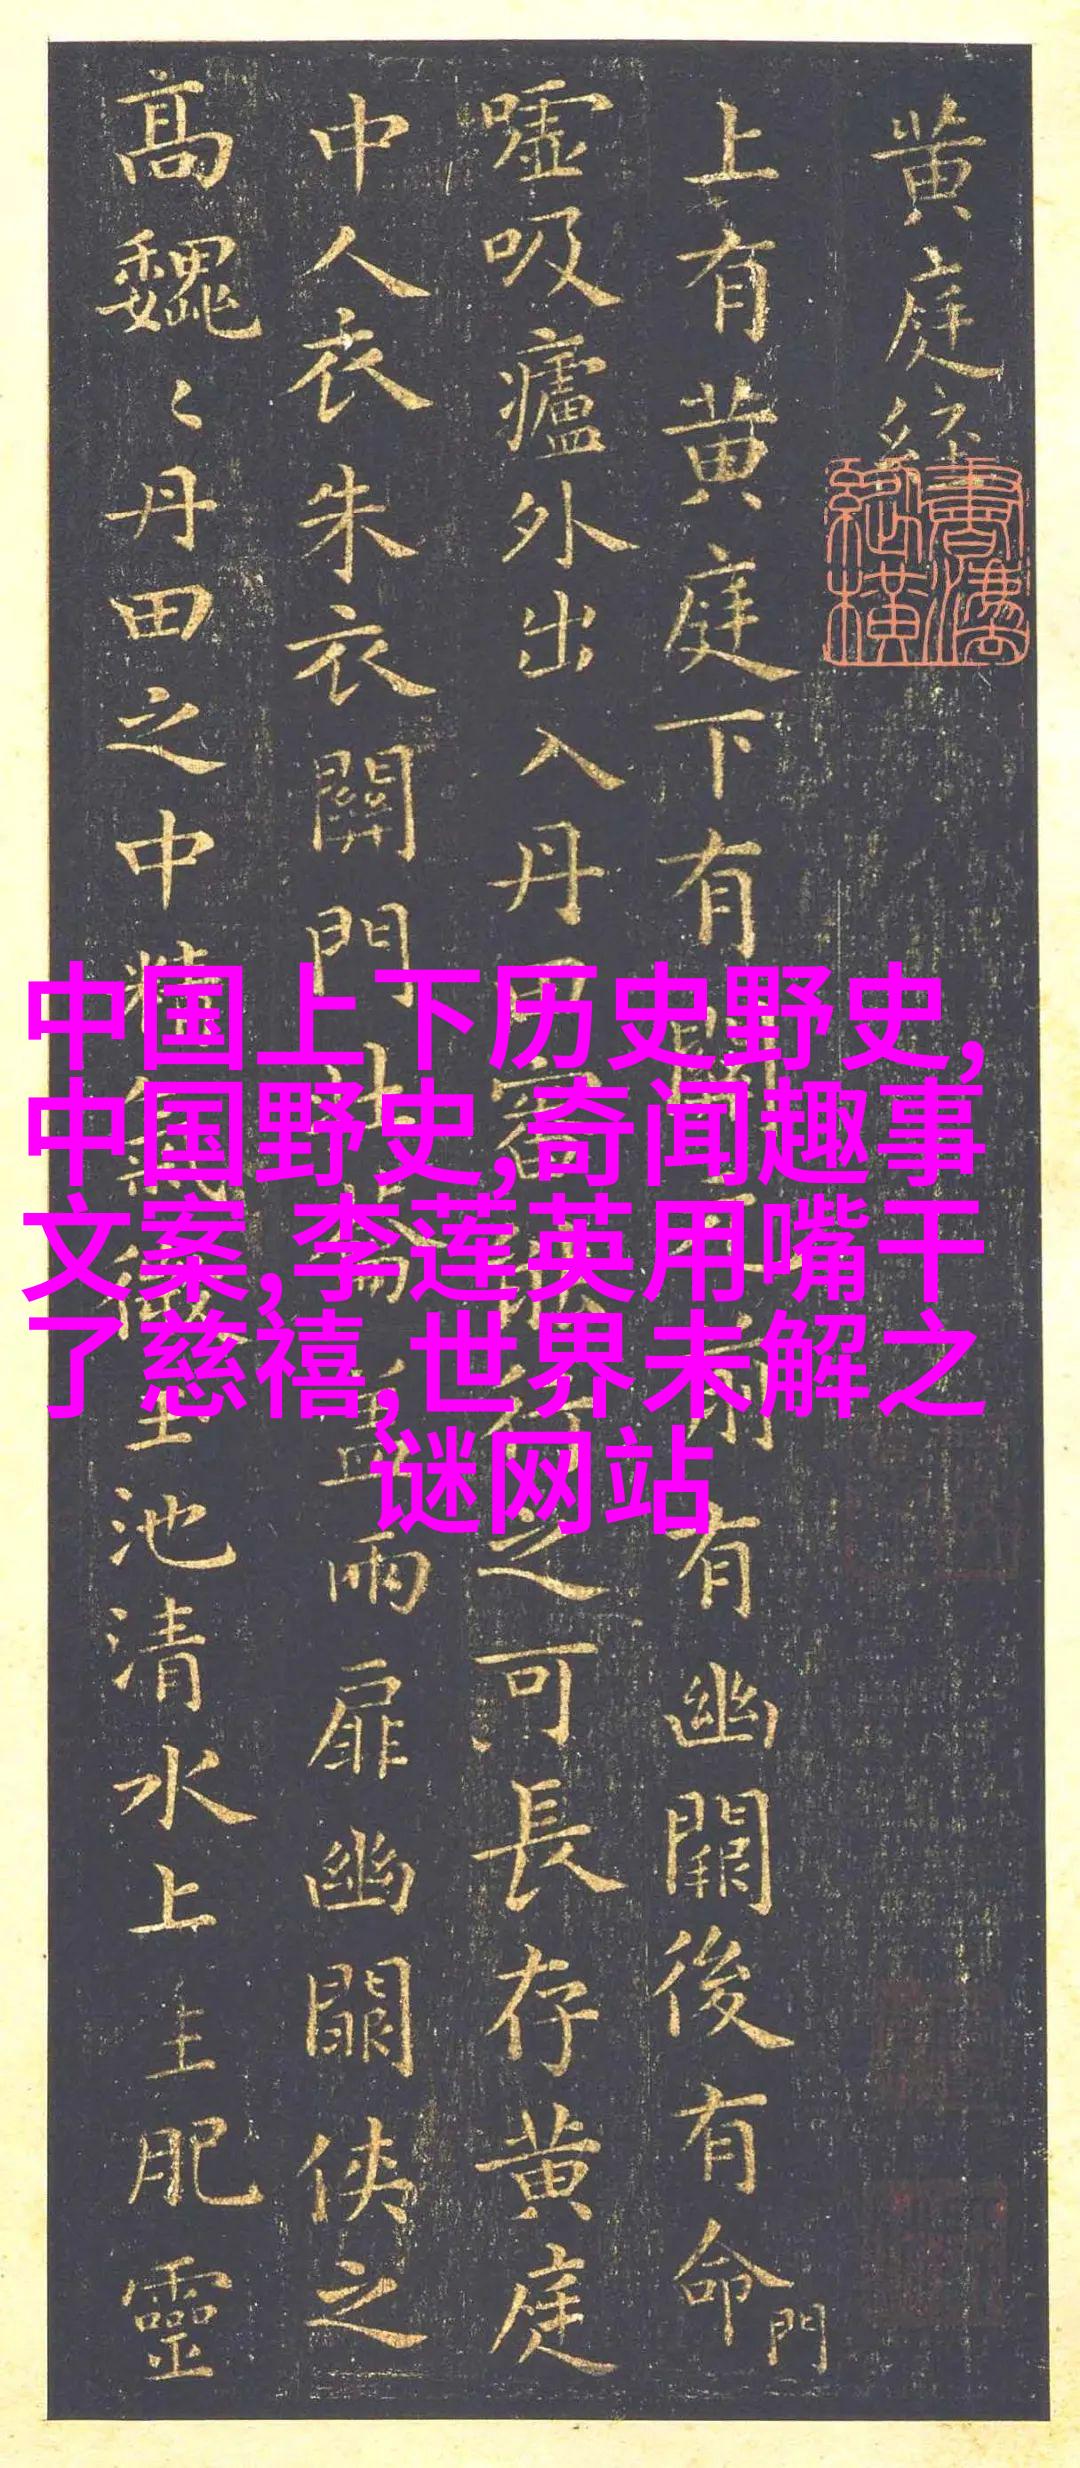 黄庭經
上有黄庭下有關元前有幽闕後有命門
嘘吸廬外出入丹田審能行之可長存黄庭
中人衣朱衣關門壯籥蓋兩扉幽闕俠之
高巍〻丹田之中精氣微玉池清水上主肥靈
中国上下历史野史,
中国野史,奇闻趣事
文案,李莲英用嘴干
了慈禧,世界未解之
谜网站